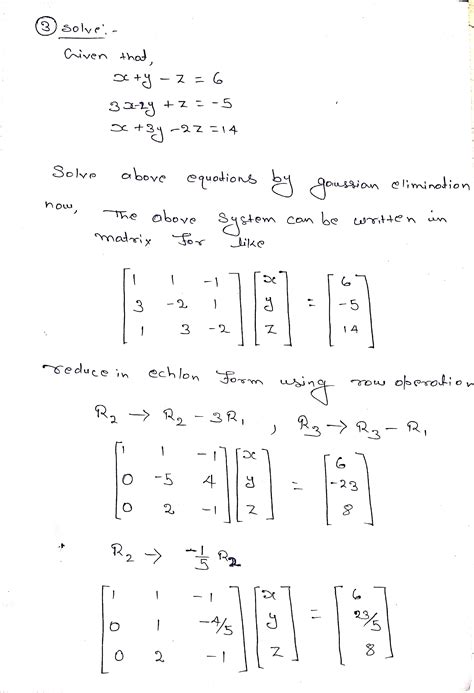 ③ Solve:-
Given that,
x+y-z = 6
3x-2y+z = -5
x+3y-2z=14
Solve above equations by gaussian elimination
now, The above System can be written in
matrix for like
[1 1 -1] [x] [6]
[3 -2 1] [y] = [-5]
[1 3 -2] [z] [14]
reduce in echlon form using row operation
R₂ → R₂ - 3R₁ , R₃ → R₃ - R₁
[1 1 -1] [x] [6]
[0 -5 4] [y] = [-23]
[0 2 -1] [z] [8]
R₂ → -1/5 R₂
[1 1 -1] [x] [6]
[0 1 -4/5] [y] = [23/5]
[0 2 -1] [z] [8]